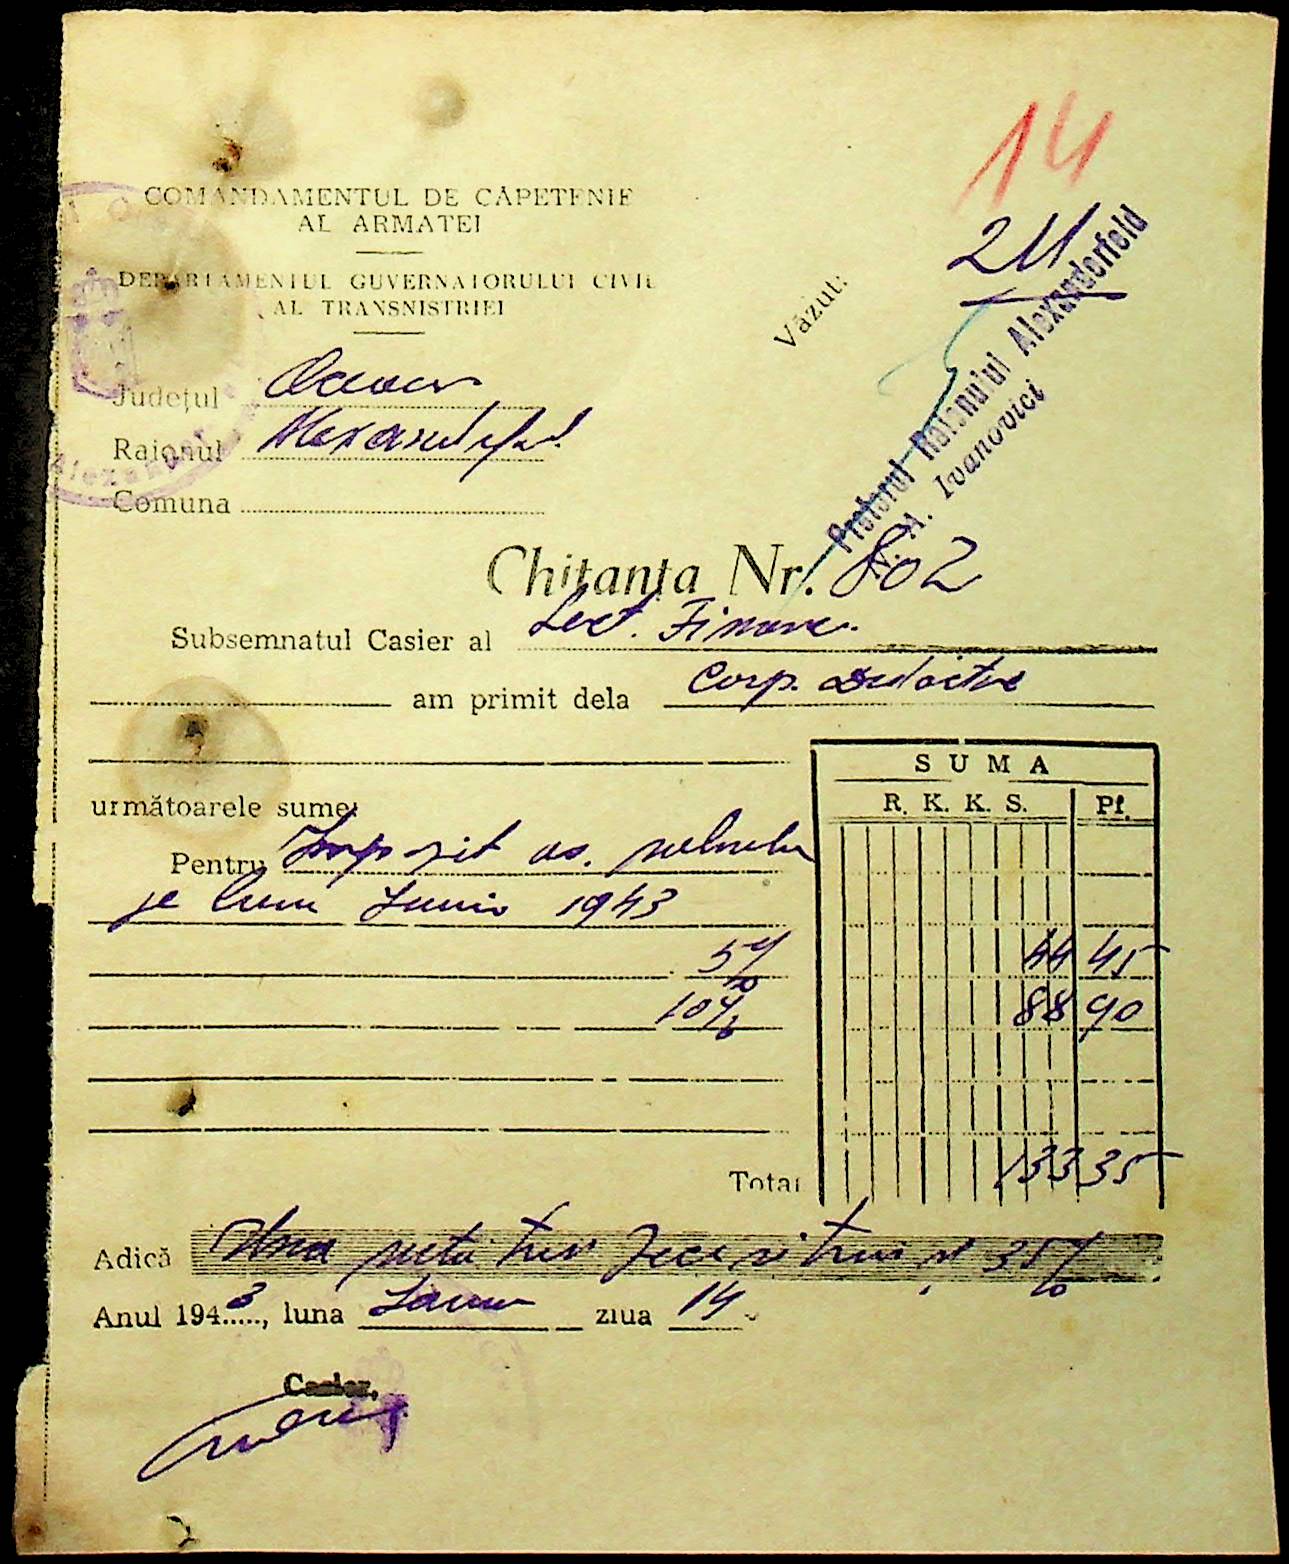 14
COMANDAMENTUL DE CĂPETENIE
AL ARMATEI
211
DEPARTAMENTUL GUVERNATORULUI CIVIL
AL TRANSNISTRIEI
Văzut:
Pretorul Raionului Alexanderfeld
Ivanovici
Județul
Raionul Alexanderfeld.
Comuna
Chitanța Nr. 802
Subsemnatul Casier al Sect. Financ.
am primit dela Corp. Didactic
SUMA
R. K. K. S. Pf.
următoarele sume:
Pentru Impozit as.
pe luna Iunie 1943
5% 44 45
10% 88 90
Total 133 35
Adică Una sută trei zeci si trei 35%
Anul 1943, luna ziua 14
Casier,